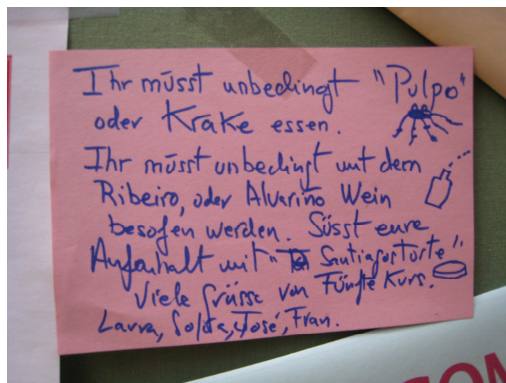 Ihr müsst unbedingt "Pulpo"
oder Krake essen.
Ihr müsst unbedingt mit dem
Ribeiro, oder Alvariño Wein
besofen werden. Süsst eure
Aufenhalt mit " Santiagostorte"
Viele Grüsse von Fünfte Kurs.
Laura, José, Fran.